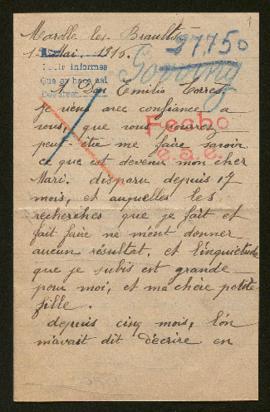 Marolle les Braults
1 Mai. 1916.
27750
Pedir informes
Que se hace así
A Don Emilio
je viens avec confiance a
vous, que vous pouvez
Fecho
peut être me faire savoir
ce que est devenir mon cher
Mari. disparu depuis 17
mois, et auquelles les
recherches que je fait et
fait faire ne m'ont donner
aucun résultat. et l'inquiétude
que je subis est grande
pour moi, et ma chère petite
fille.
depuis cinq mois, l'on
m'avait dit d'écrire en